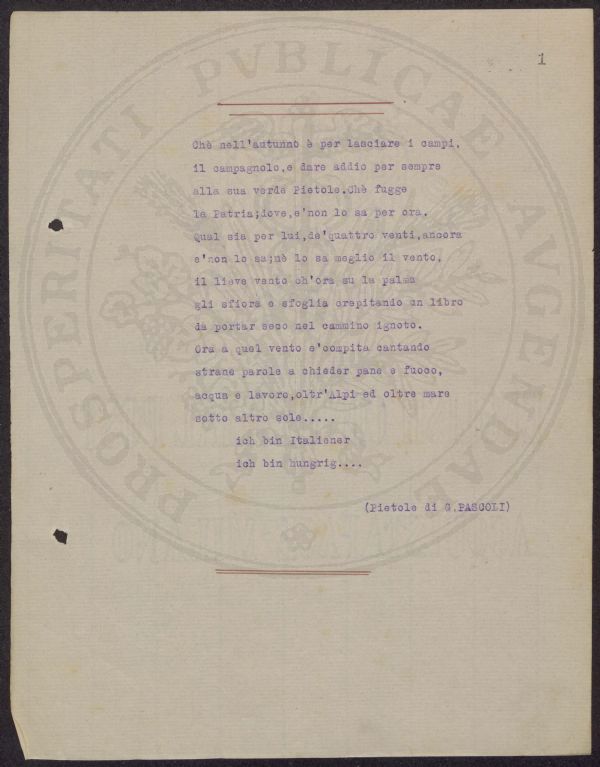 1
Chè nell'autunno è per lasciare i campi,
il campagnolo,e dare addio per sempre
alla sua verde Pietole.Chè fugge
la Patria;dove,e'non lo sa per ora.
Qual sia per lui,de'quattro venti,ancora
e'non lo sa;nè lo sa meglio il vento,
il lieve vento ch'ora su la palma
gli sfiora e sfoglia crepitando un libro
da portar seco nel cammino ignoto.
Ora a quel vento e'compita cantando
strane parole a chieder pane e fuoco,
acqua e lavoro,oltr'Alpi ed oltre mare
sotto altro sole.....
ich bin Italiener
ich bin hungrig....
(Pietole di G.PASCOLI)
PROSPERITATI PVBLICAE AVGENDAE